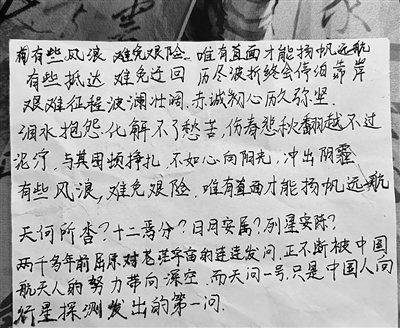 有有些风浪 难免艰险 唯有直面才能扬帆远航
有些抵达 难免迂回 历尽波折终会停泊靠岸
艰难征程波澜壮阔,赤诚初心历久弥坚.
泪水抱怨,化解不了愁苦,伤春悲秋翻越不过
泥泞.与其困顿挣扎,不如心向阳光,冲出阴霾
有些风浪,难免艰险.唯有直面才能扬帆远航
天何所沓?十二焉分?日月安属?列星安陈?
两千多年前屈原对苍茫宇宙的连连发问,正不断被中国
航天人的努力带向深空.而天问一号,只是中国人向
行星探测发出的第一问.